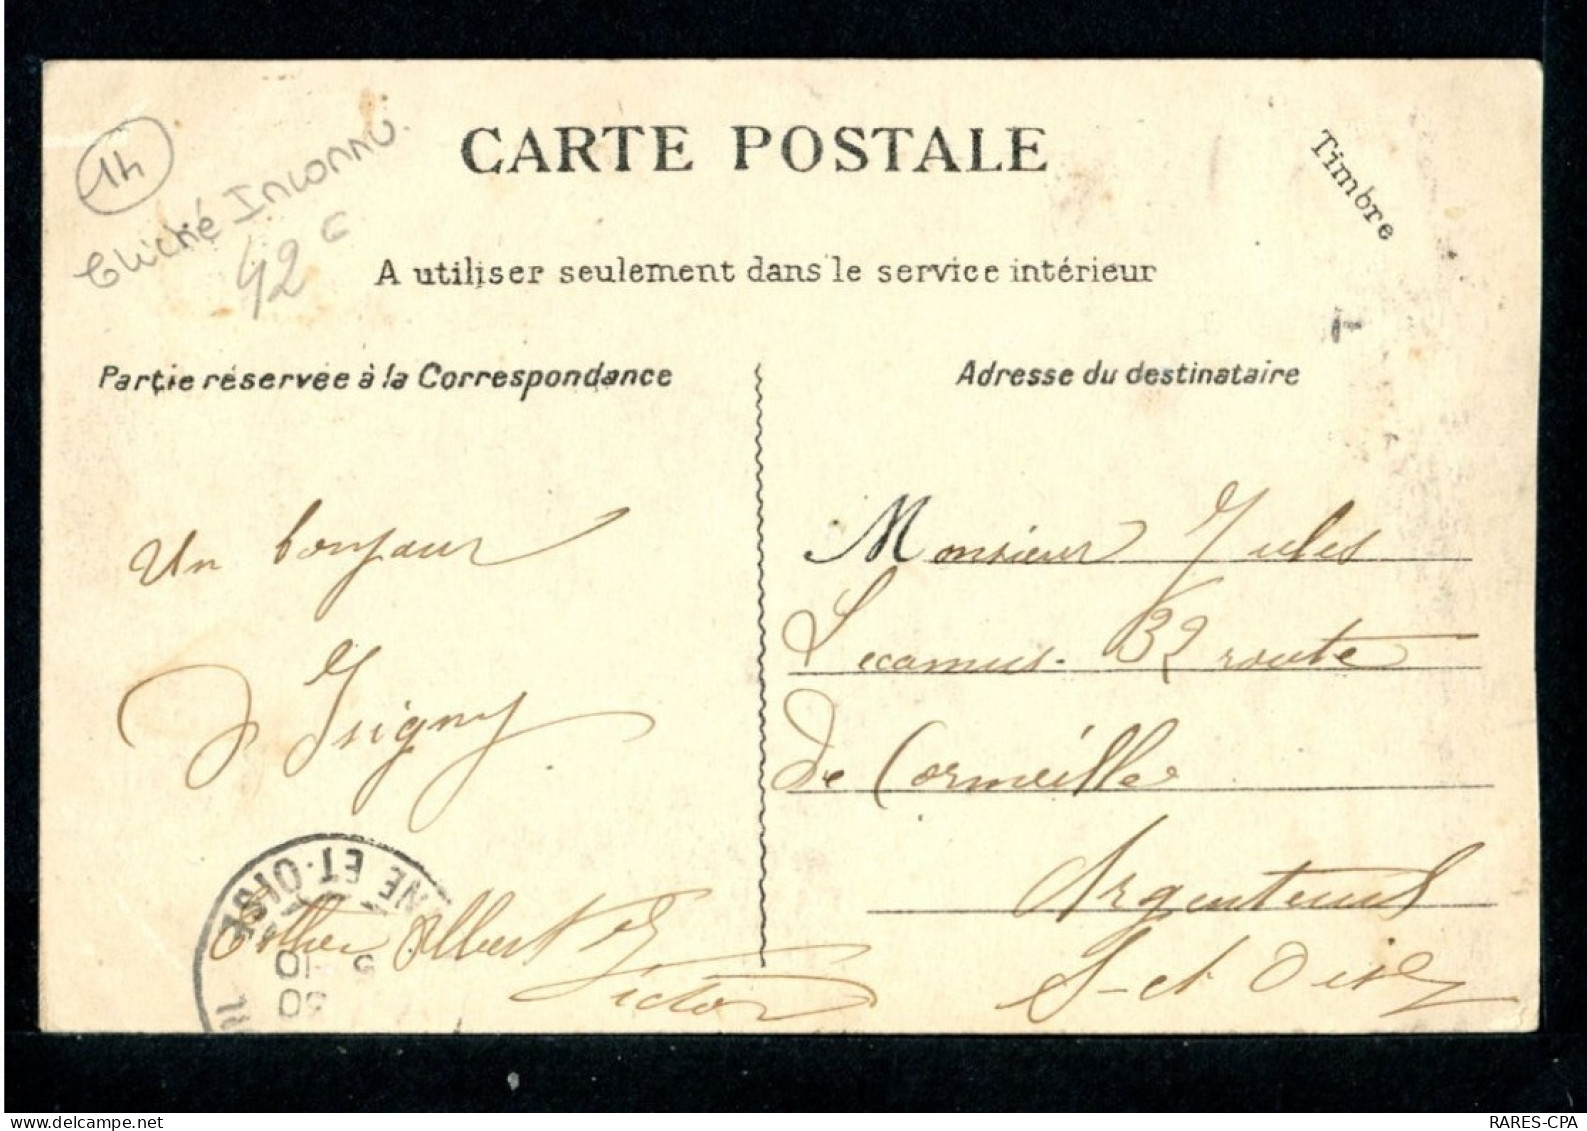 14
Cliché Inconnu
42 c
CARTE POSTALE
Timbre
A utiliser seulement dans le service intérieur
Partie réservée à la Correspondance
Adresse du destinataire
Un bonjour
d'Isigny
Esther Albert et
Victor
Monsieur Jules
Lecamus. 32 route
De Cormeilles
Argenteuil
S-et Oise
NE ET-OISE
5
10
delcampe.net
RARES-CPA